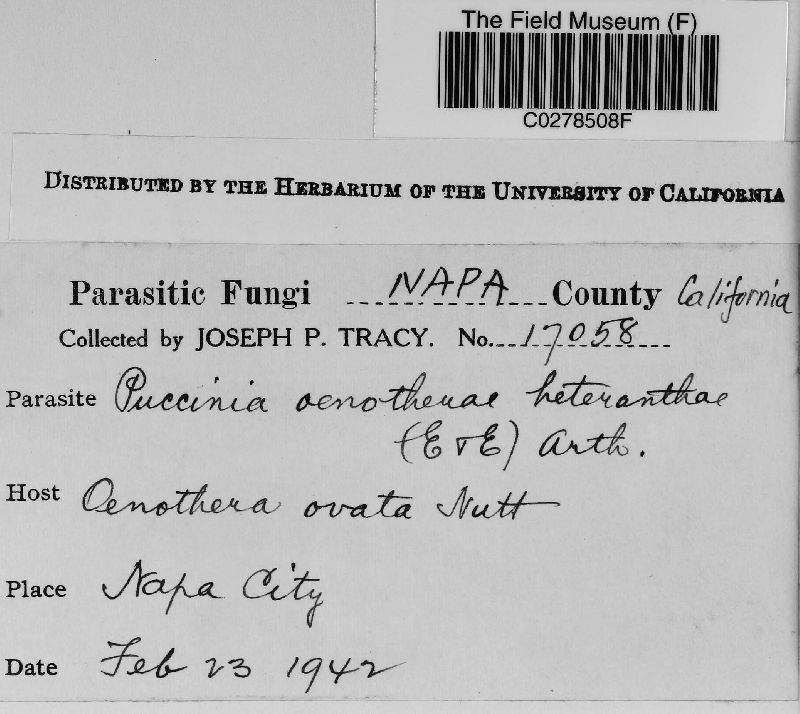 The Field Museum (F)
C0278508F
DISTRIBUTED BY THE HERBARIUM OF THE UNIVERSITY OF CALIFORNIA
Parasitic Fungi NAPA County California
Collected by JOSEPH P. TRACY. No. 17058
Parasite Puccinia oenotherae heteranthae
(E & E) Arth.
Host Oenothera ovata Nutt
Place Napa City
Date Feb 23 1942